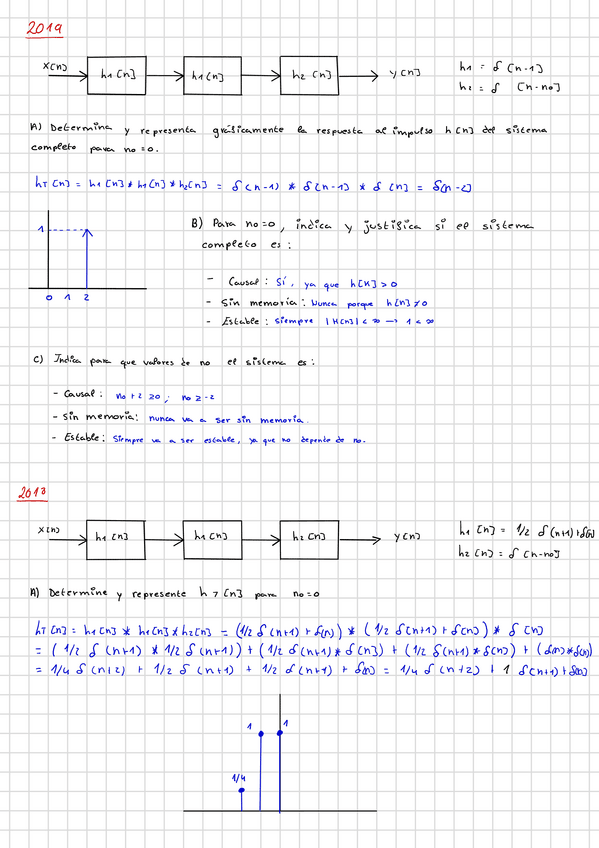 2019
x[n] h1[n] h1[n] h2[n] y[n] h1 = δ[n-1]
h2 = δ [n-no]
A) Determina y representa gráficamente la respuesta al impulso h[n] del sistema
completo para no=0.
hT[n] = h1[n] * h1[n] * h2[n] = δ(n-1) * δ[n-1] * δ[n] = δ[n-2]
1
0 1 2
B) Para no=0, indica y justifica si el sistema
completo es:
- Causal: Sí, ya que h[n] > 0
- Sin memoria: Nunca porque h[n] ≠ 0
- Estable: Siempre |h[n]| < ∞ → 1 < ∞
C) Indica para que valores de no el sistema es:
- Causal: no+2 ≥0; no ≥-2
- Sin memoria: nunca va a ser sin memoria.
- Estable: Siempre va a ser estable, ya que no depende de no.
2018
x[n] h1[n] h1[n] h2[n] y[n] h1[n] = 1/2 δ(n+1)+δ(n)
h2[n] = δ[n-no]
A) Determine y represente h7[n] para no=0
hT[n] = h1[n] * h1[n] * h2[n] = (1/2 δ(n+1) + δ(n)) * (1/2 δ[n+1) + δ[n)) * δ[n]
= (1/2 δ(n+1) * 1/2 δ(n+1)) + (1/2 δ(n+1) * δ[n]) + (1/2 δ(n+1) * δ(n)) + (δ(n) * δ(n))
= 1/4 δ(n+2) + 1/2 δ(n+1) + 1/2 δ(n+1) + δ(n) = 1/4 δ(n+2) + 1 δ(n+1) + δ(n)
1 1
1/4